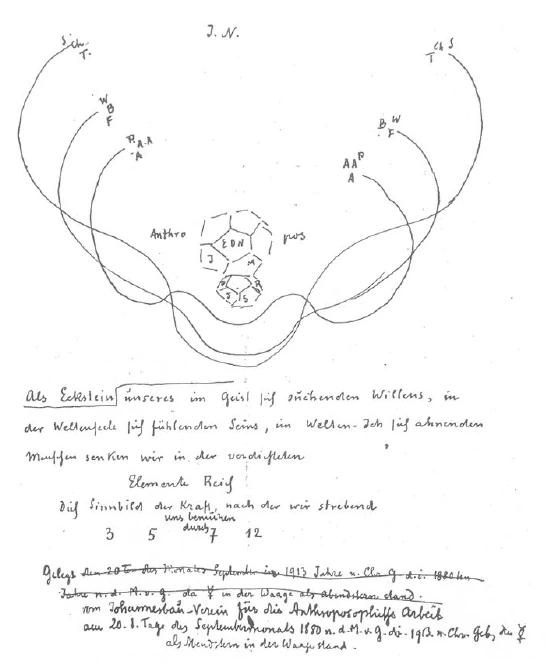 J. N.
S Ch
T.
T Ch S
W
B
F
B W
F
P. A. A
A
A A P
A
Anthro pos
E D N
J M
J S
Als Eckstein unseres im Geist sich suchenden Willens, in
der Weltenseele sich fühlenden Seins, im Welten-Ich sich ahnenden
Menschen senken wir in der verdichteten
Elemente Reich
Dies Sinnbild der Kraft, nach der wir strebend
uns bemühen
durch
3 5 7 12
Gelegt den 20ten des Monates September im 1913 Jahre n. Chr. G d. i. 1880ten
Jahre n. d. M. v. G. da ☿ in der Waage als Abendstern stand.
vom Johannesbau-Verein für die Anthroposophische Arbeit
am 20. S. Tage des Septembermonats 1880 n. d. M. v. G. d. i. 1913 n. Chr. Geb, da ☿
als Abendstern in der Waage stand.